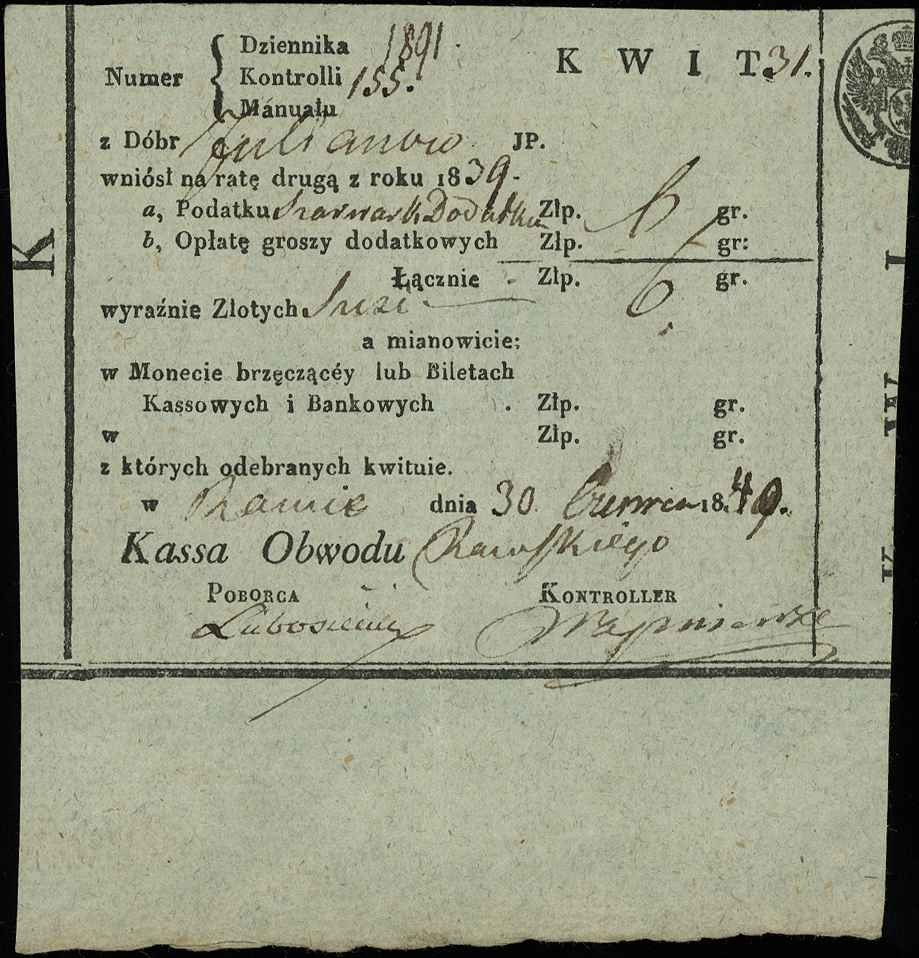 Numer { Dziennika 1891.
Kontrolli 155.
Mánuału
K W I T 31.
z Dóbr Julianow JP.
wniósł na ratę drugą z roku 1839.
a, Podatku Szarwark Dodatku Złp. 6 gr.
b, Opłatę groszy dodatkowych Złp. gr:
Łącznie . Złp. 6 gr.
wyraźnie Złotych
a mianowicie:
w Monecie brzęczącéy lub Biletach
Kassowych i Bankowych . Złp. gr.
w Złp. gr.
z których odebranych kwituie.
w Rawie dnia 30 Czerwca 1849.
Kassa Obwodu Rawskiego
POBORCA KONTROLLER
K
I
W
K